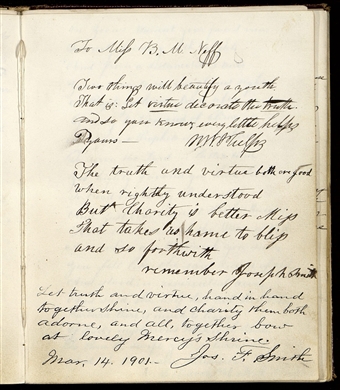 To Miss B. M. Neff
Two things will beautify a youth
That is: Let virtue decorate the truth
and so you know; every little helps
Yours — W. W. Phelps
The truth and virtue both are good
when rightly understood
But Charity is better Miss
That takes us home to bliss
and so forthwith
remember Joseph Smith
Let truth and virtue, hand in hand
together shine, and charity them both
adorne, and all, together bow
at lovely Mercy's Shrine
Mar. 14. 1901. Jos. F. Smith